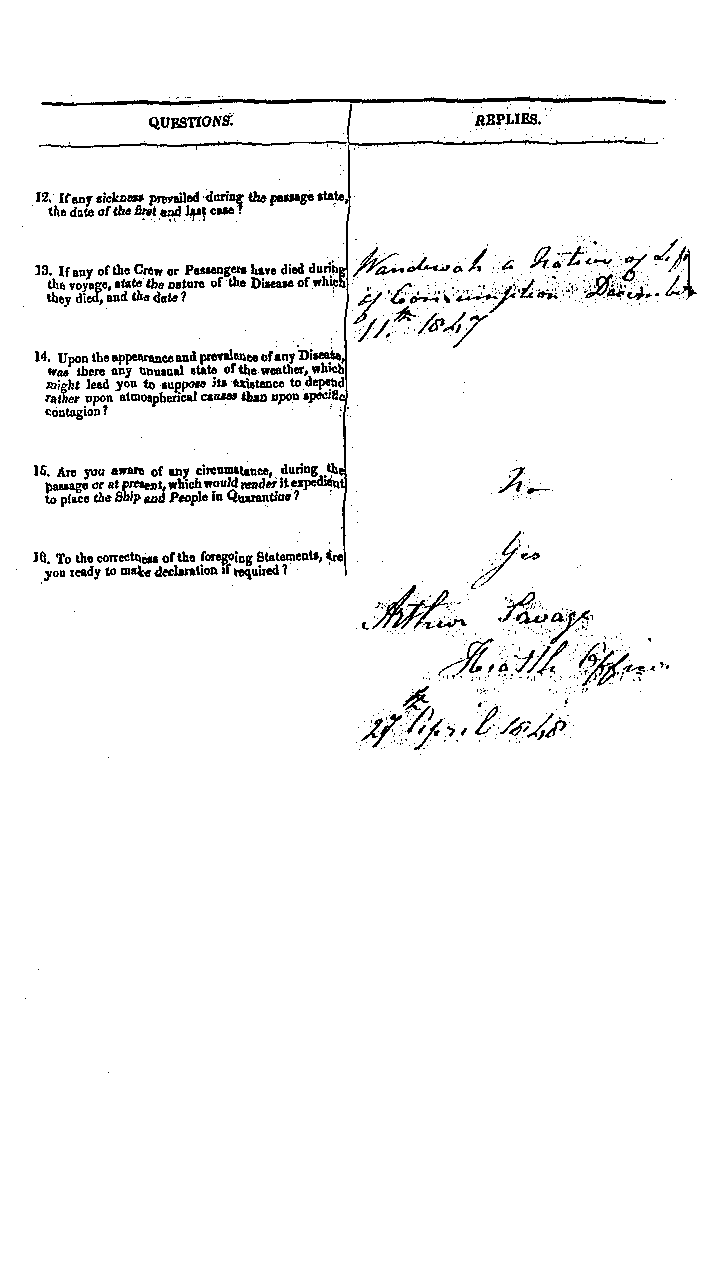 QUESTIONS.
REPLIES.
12. If any sickness prevailed during the passage state,
the date of the first and last case?
13. If any of the Crew or Passengers have died during
the voyage, state the nature of the Disease of which
they died, and the date?
Wandewah a Native of
of Consumption December
11.th 1847
14. Upon the appearance and prevalence of any Disease,
was there any unusual state of the weather, which
might lead you to suppose its existence to depend
rather upon atmospherical causes than upon specific
contagion?
15. Are you aware of any circumstance, during the
passage or at present, which would render it expedient
to place the Ship and People in Quarantine?
No
16. To the correctness of the foregoing Statements, are
you ready to make declaration if required?
Yes
Arthur Savage
Health Officer
27th April 1848